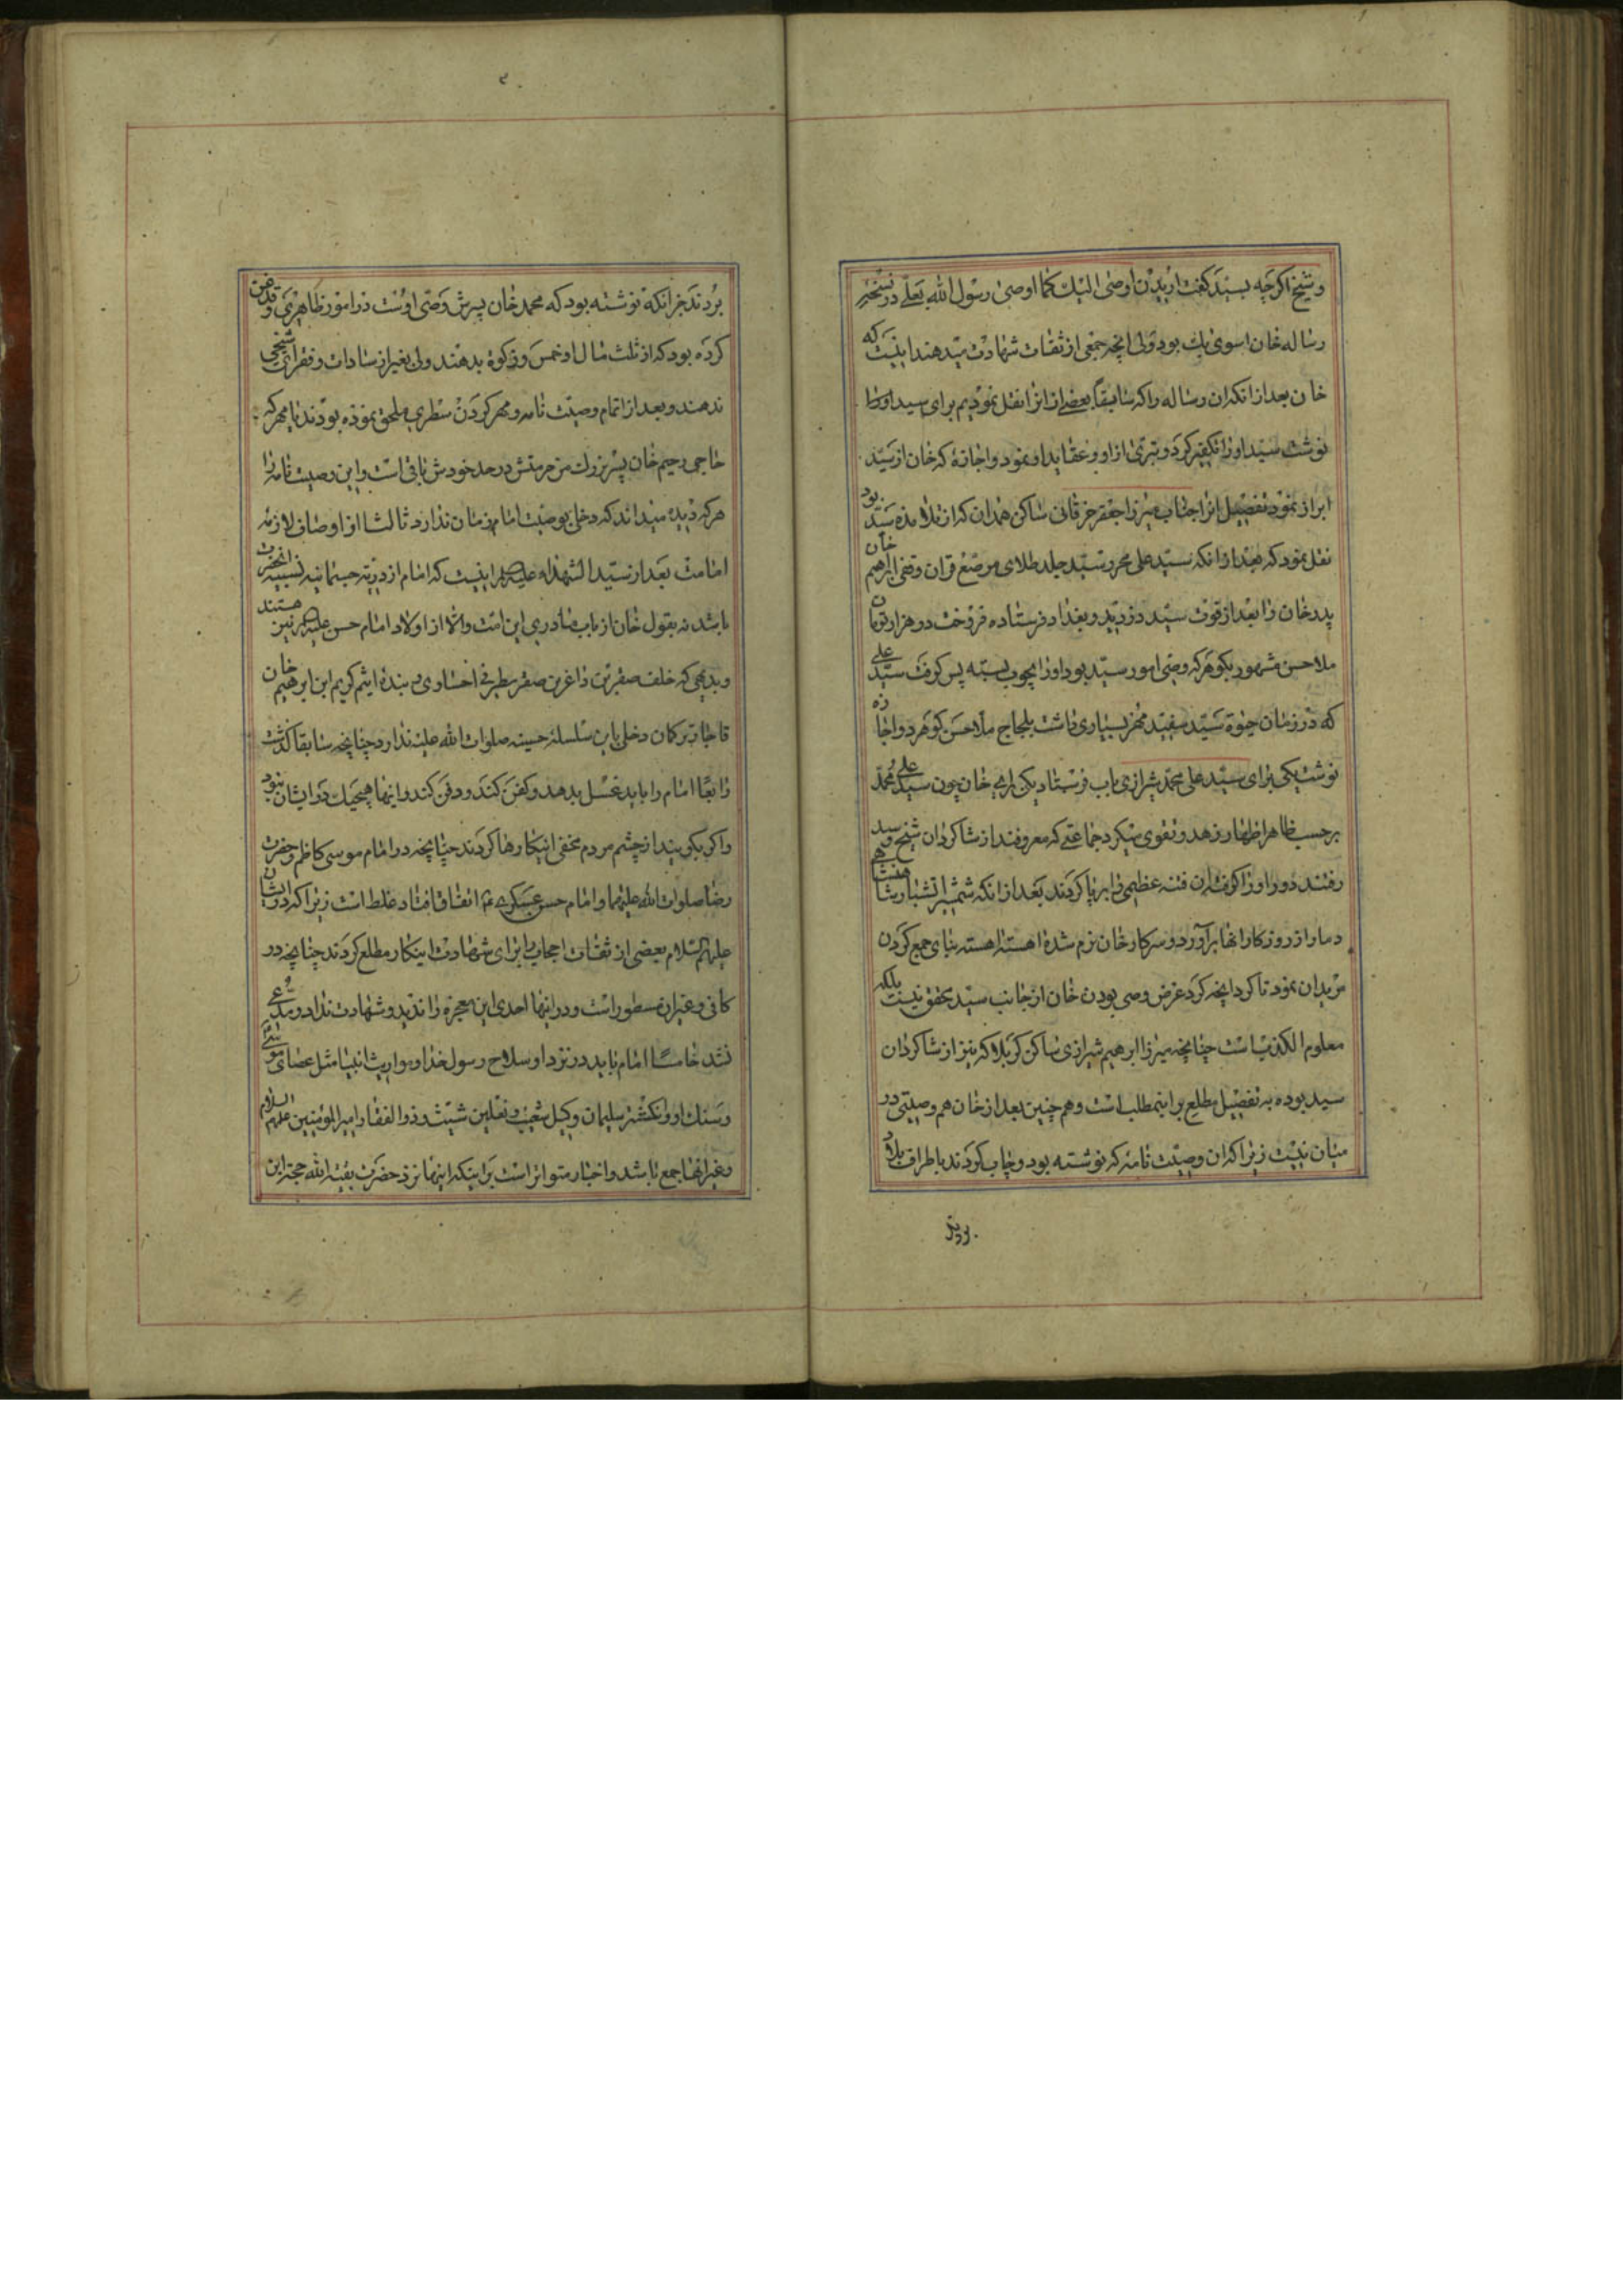 وشیخ اگرچه بسید گفت ارید ان اوصی الیك كما اوصی رسول الله بعلی در نسخه
رساله خان اسوی بك بود ولی انچه جمعی از ثقات شهادت میدهند اینست که
خان بعد از انکه ان رساله را که سابقاً بعضی از انرا نقل نمودیم برای سید اورا
نوشت سید اورا تکفیر کرد و تبری از او و عقاید او نمود و اجازه که خان از سید
ابراز نمود تفصیل انرا جناب میرزا جعفر خرقانی ساکن همدان که از تلامذه سید بود
نقل نمود که بعد از انکه سید علی محرر سید جلد طلای مرصع قران وقفی ابرهیم خان
پدر خان را بعد از فوت سید دزدید و بغداد فرستاده فروخت دو هزار تومان
ملا حسن مشهور بگوهر که وصی امور سید بود اورا بچوب بسته پس گرفت سید علی
که در زمان حیوة سید سفید مهر بسیاری داشت بلجاج ملا حسن گوهر دو اجازه
نوشت یکی برای سید علی محمد شیرازی باب فرستاد یکی برای خان چون سید علی محمد
برحسب ظاهر اظهار زهد و تقوی میکرد جماعتی که معروفند از شاگردان شیخ و سید
رفتند دور اورا گرفته ان فتنه عظیمی را برپا کردند بعد از انکه شمشیر اتشبار شاهنشاهی
دمار از روزکار انها برآورد و سرکار خان نرم شده اهسته اهسته بنای جمع کردن
مریدان نمود تا کرد انچه کرد غرض وصی بودن خان از جانب سید محقق نیست بلکه
معلوم الکذب است چنانچه میرزا ابرهیم شیرازی ساکن کربلا که نیز از شاگردان
سید بوده به تفصیل مطلع بر اینمطلب است و هم چنین بعد از خان هم وصیتی در
میان نیست زیرا که ان وصیت نامه که نوشته بود و چاپ کردند باطراف بلاد
بردند
بردند جز انکه نوشته بود که محمد خان پسرش وصی اوست در امور ظاهری و قدغن
کرده بود که از ثلث مال او خمس و زکوة بدهند ولی بغیر از سادات و فقرای شیخی
ندهند و بعد از اتمام وصیت نامه و مهر کردن سطری ملحق نموده بودند با مهر که
حاجی رحیم خان پسر بزرك من حرمتش در حد خودش باقی است و این وصیت نامه را
هرکه دیده میداند که دخلی بوصیت امام زمان ندارد ثالثا از اوصاف لازمه
امامت بعد از سید الشهداء علیه السلم اینست که امام از ذریه جسمانیه نسبیه انحضرت
باشد نه بقول خان از باب مادری این امت والا از اولاد امام حسن علیه السلم نیز هستند
و بدیهی که خلف صفرتین زاغرین صفر بطرفی اختاری و بنده اثیم کریم ابن ابرهیم خان
قاجار ترکمان دخلی باین سلسلة حسینه صلوات الله علیه ندارد چنانچه سابقا گذشت
رابعًا امام را باید غسل بدهد و کفن کند و دفن کند و اینها هیچیك در ایشان نبود
و اگر بگویند از چشم مردم مخفی اینکارها کردند چنانچه در امام موسی کاظم و حضرت
رضا صلوات الله علیهما و امام حسن عسکری ع اتفاق افتاد غلط است زیرا که در ایشان
علیهم السلام بعضی از ثقات اصحاب برای شهادت اینکار مطلع کردند چنانچه در
کافی و غیر ان مسطور است و در اینها احدی این معجزه را ندید و شهادت نداد و مدعی
نشد خامسًا امام باید در نزد او سلاح رسول خدا و مواریث انبیا مثل عصای موسی
و سنك او و انکشتر سلیمان و کیل شعیب و نعلین شیث و ذو الفقار امیر المؤمنین علیهم السلام
و غیر انها جمع باشد و اخبار متواتر است بر اینکه اینها نزد حضرت بقیة الله حجة ابن